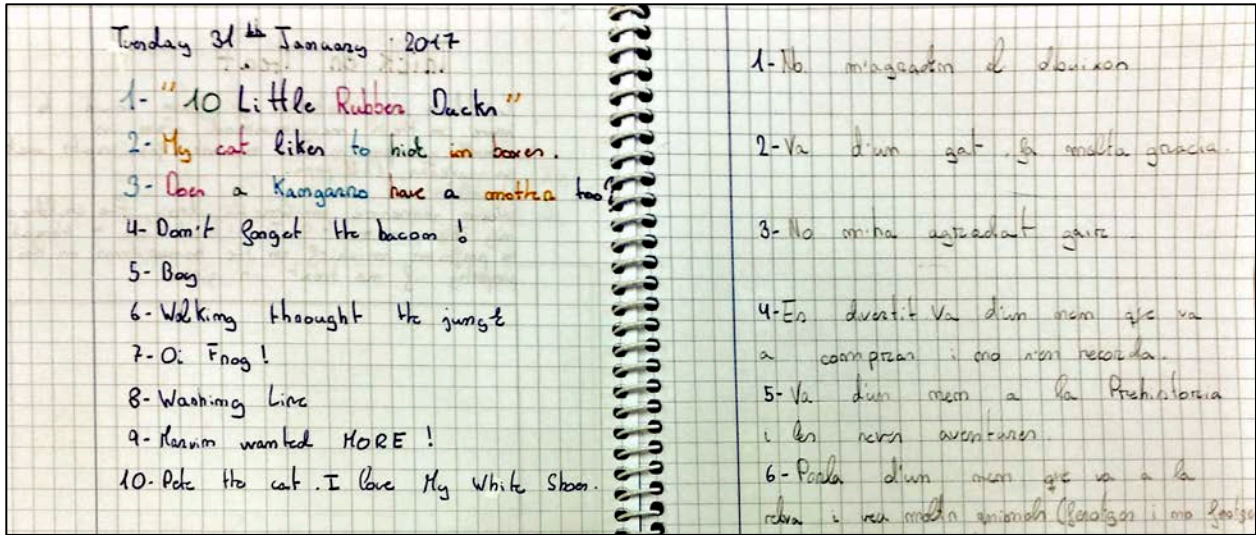 Tuesday 31th January 2017
1- "10 Little Rubber Ducks"
2- My cat likes to hide in boxes.
3- Does a Kangaroo have a mother too?
4- Don't forget the bacon !
5- Boy
6- Walking throught the jungle
7- Oi Frog !
8- Washing Line
9- Marvin wanted MORE !
10- Pete the cat . I love My White Shoes.
1- No m'agraden el dbuixos
2- Va d'un gat . fa molta gracia.
3- No m'ha agradat gaire
4- Es divertit Va d'un nen que va
a comprar i no s'en recorda.
5- Va d'un nen a la Prehistoria
i les seves aventures.
6- Parla d'un nen que va a la
selva i veu molts animals (ferotges i no ferotges